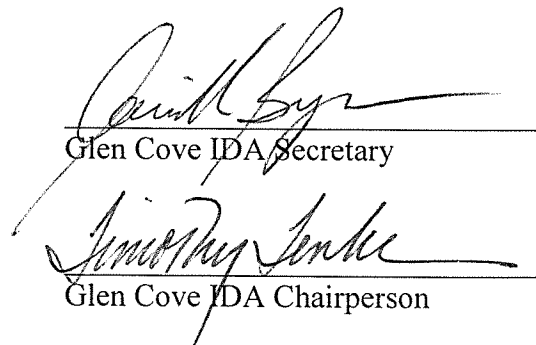 Glen Cove IDA Secretary
Timothy Tenke
Glen Cove IDA Chairperson